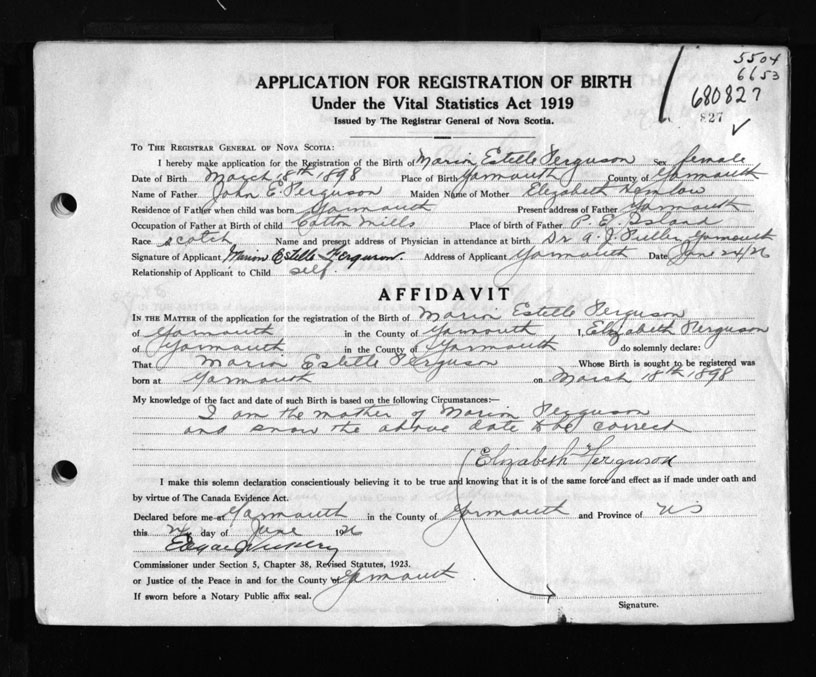 5504
6653
680827
827
APPLICATION FOR REGISTRATION OF BIRTH
Under the Vital Statistics Act 1919
Issued by The Registrar General of Nova Scotia.
TO THE REGISTRAR GENERAL OF NOVA SCOTIA:
I hereby make application for the Registration of the Birth of Marion Estelle Ferguson Sex female
Date of Birth March 18th 1898 Place of Birth Yarmouth County of Yarmouth
Name of Father John E. Ferguson Maiden Name of Mother Elizabeth
Residence of Father when child was born Yarmouth Present address of Father Yarmouth
Occupation of Father at Birth of child Cotton Mills Place of birth of Father P. E. Island
Race Scotch Name and present address of Physician in attendance at birth Dr A. J. Fuller Yarmouth
Signature of Applicant Marion Estelle Ferguson. Address of Applicant Yarmouth Date June 24/26
Relationship of Applicant to Child self
AFFIDAVIT
IN THE MATTER of the application for the registration of the Birth of Marion Estelle Ferguson
of Yarmouth in the County of Yarmouth I, Elizabeth Ferguson
of Yarmouth in the County of Yarmouth do solemnly declare:
That Marion Estelle Ferguson Whose Birth is sought to be registered was
born at Yarmouth on March 18th 1898
My knowledge of the fact and date of such Birth is based on the following Circumstances:—
I am the mother of Marion Ferguson
and know the above date to be correct
Elizabeth Ferguson
I make this solemn declaration conscientiously believing it to be true and knowing that it is of the same force and effect as if made under oath and
by virtue of The Canada Evidence Act.
Declared before me at Yarmouth in the County of Yarmouth and Province of NS
this 24 day of June 1926
Commissioner under Section 5, Chapter 38, Revised Statutes, 1923.
or Justice of the Peace in and for the County of Yarmouth
If sworn before a Notary Public affix seal.
Signature.